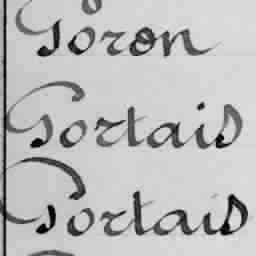 Poron
Portais
Portais